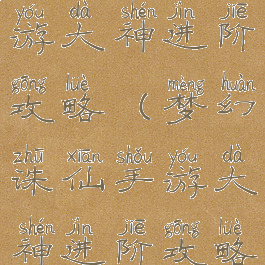 yóu dà shén jìn jiē
游大神进阶
gōng lüè mèng huàn
攻略（梦幻
zhū xiān shǒu yóu dà
诛仙手游大
shén jìn jiē gōng lüè
神进阶攻略